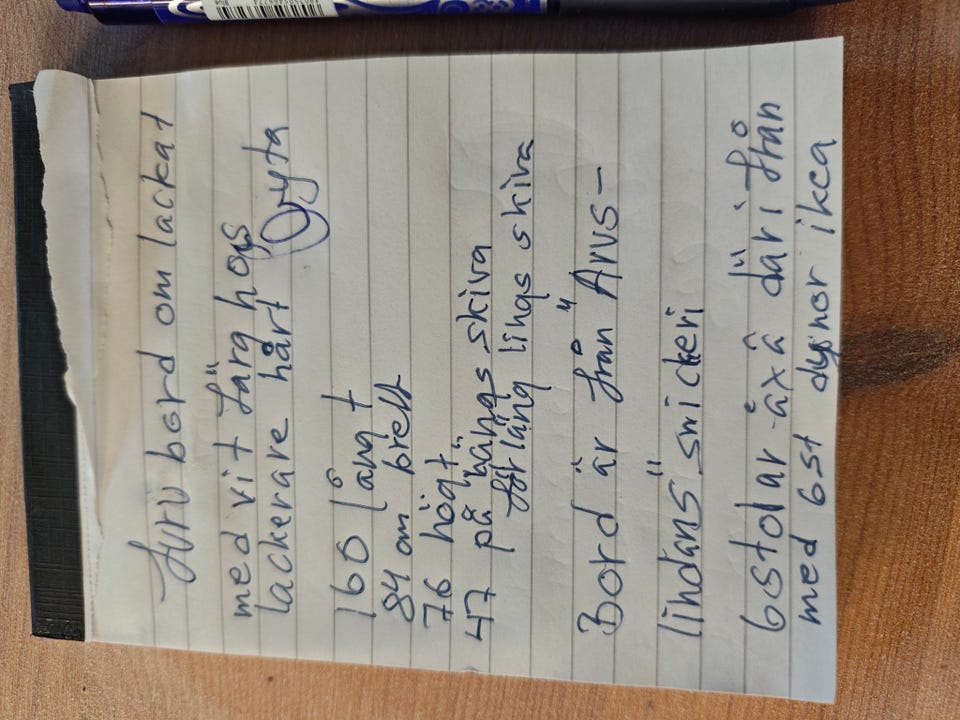 furu bord om lackat
med vit färg hos
lackerare hårt yta
160 långt
84 om brett
76 högt
47 på hängs skiva
för läng lings skiva
Bord är från Arvs-
lindans snickeri
6 stolar äxå däri från
med 6st dynor ikea